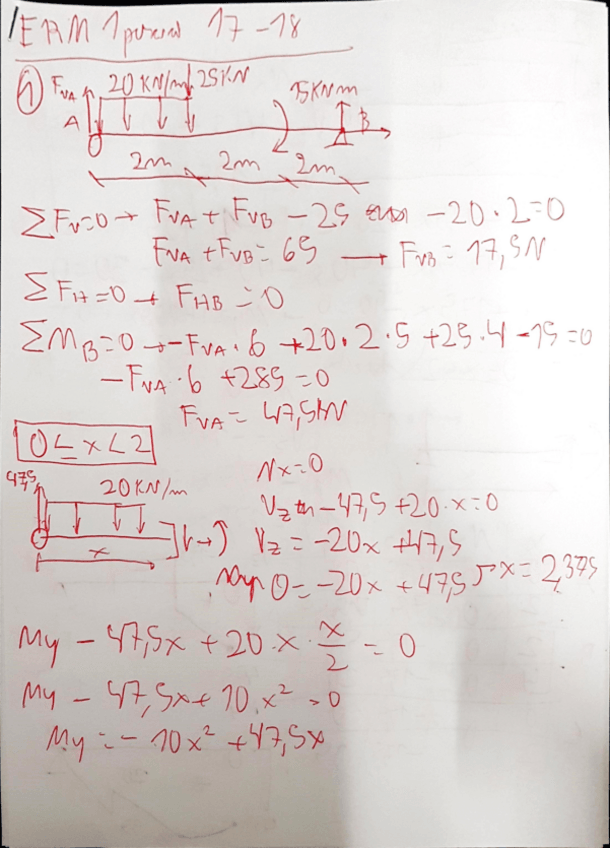 ERM 1 17-18
1
FVA 20 KN/m 25KN 15KNm
A B
2m 2m 2m
ΣFV=0 → FVA + FVB - 25 - 20·2=0
FVA + FVB = 65 → FVB = 17,5N
ΣFH=0 → FHB = 0
ΣMB=0 → -FVA·6 +20·2·5 +25·4 -15=0
-FVA·6 +285=0
FVA = 47,5kN
0≤x<2
47,5 20KN/m
x
Nx=0
Vz -47,5 +20·x=0
Vz = -20x +47,5
0= -20x +47,5 x=2,375
My - 47,5x + 20·x·x/2 = 0
My - 47,5x + 10x² = 0
My = -10x² +47,5x